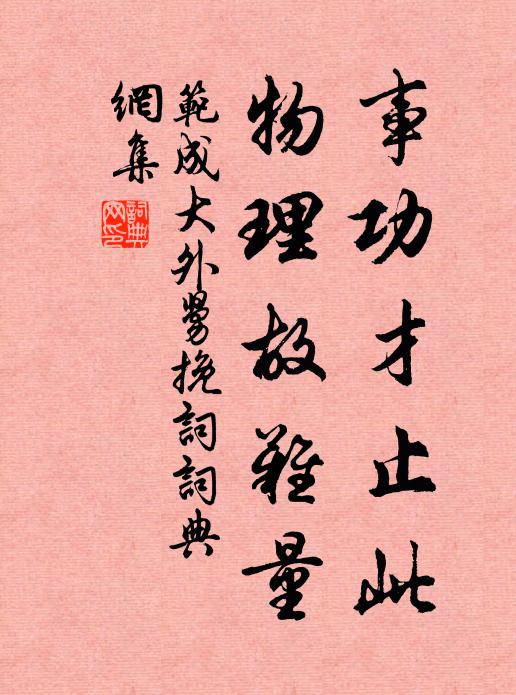 事功才止此
物理故難量
範成大外舅挽詞詞典
網集
詞典網印